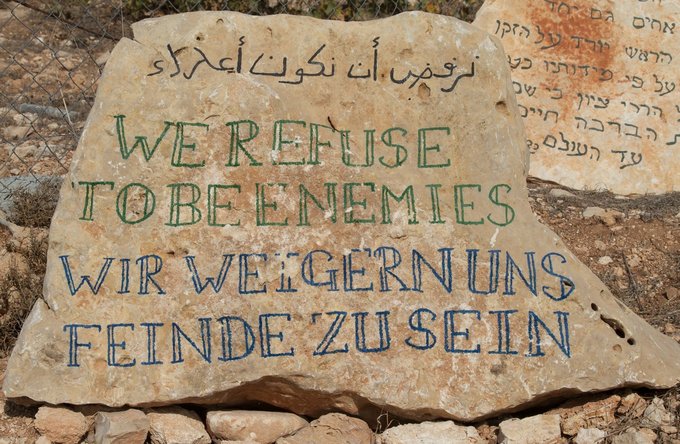 نرفض أن نكون أعداء
WE REFUSE
TO BE ENEMIES
WIR WEIGERN UNS
FEINDE ZU SEIN
אחים גם יחד
הראש יורד על הזקן
על פי מידותיו
הררי ציון כי
הברכה חיים
עד העולם